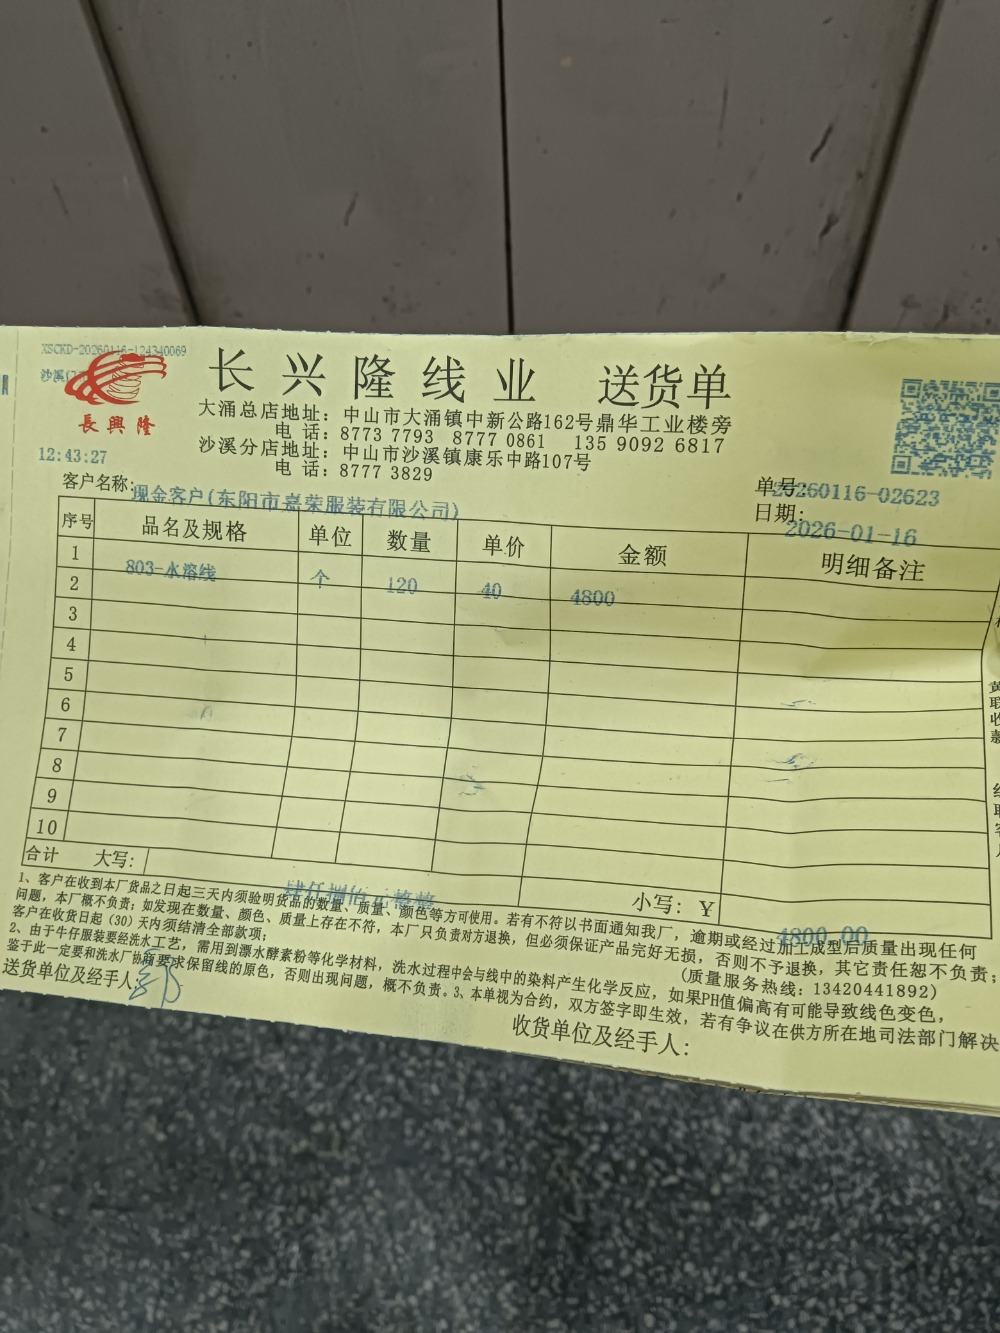 XSCKD-20260116-124340069
沙溪
長興隆
长兴隆线业 送货单
大涌总店地址：中山市大涌镇中新公路162号鼎华工业楼旁
电 话：8773 7793 8777 0861 135 9092 6817
沙溪分店地址：中山市沙溪镇康乐中路107号
电 话：8777 3829
12:43:27
客户名称：现金客户(东阳市嘉荣服装有限公司)
单号：20260116-02623
日期：2026-01-16
序号 品名及规格 单位 数量 单价 金额 明细备注
1 803-水溶线 个 120 40 4800
2
3
4
5
6
7
8
9
10
合计 大写：肆仟捌佰元整 小写：Y 4800.00
1、客户在收到本厂货品之日起三天内须验明货品的数量、质量、颜色等方可使用。若有不符以书面通知我厂，逾期或经过加工成型后质量出现任何
问题，本厂概不负责；如发现在数量、颜色、质量上存在不符，本厂只负责对方退换，但必须保证产品完好无损，否则不予退换，其它责任恕不负责；
客户在收货日起（30）天内须结清全部款项； （质量服务热线：13420441892）
2、由于牛仔服装要经洗水工艺，需用到漂水酵素粉等化学材料，洗水过程中会与线中的染料产生化学反应，如果PH值偏高有可能导致线色变色，
鉴于此一定要和洗水厂协商要求保留线的原色，否则出现问题，概不负责。3、本单视为合约，双方签字即生效，若有争议在供方所在地司法部门解决
送货单位及经手人：
收货单位及经手人：
黄联收款